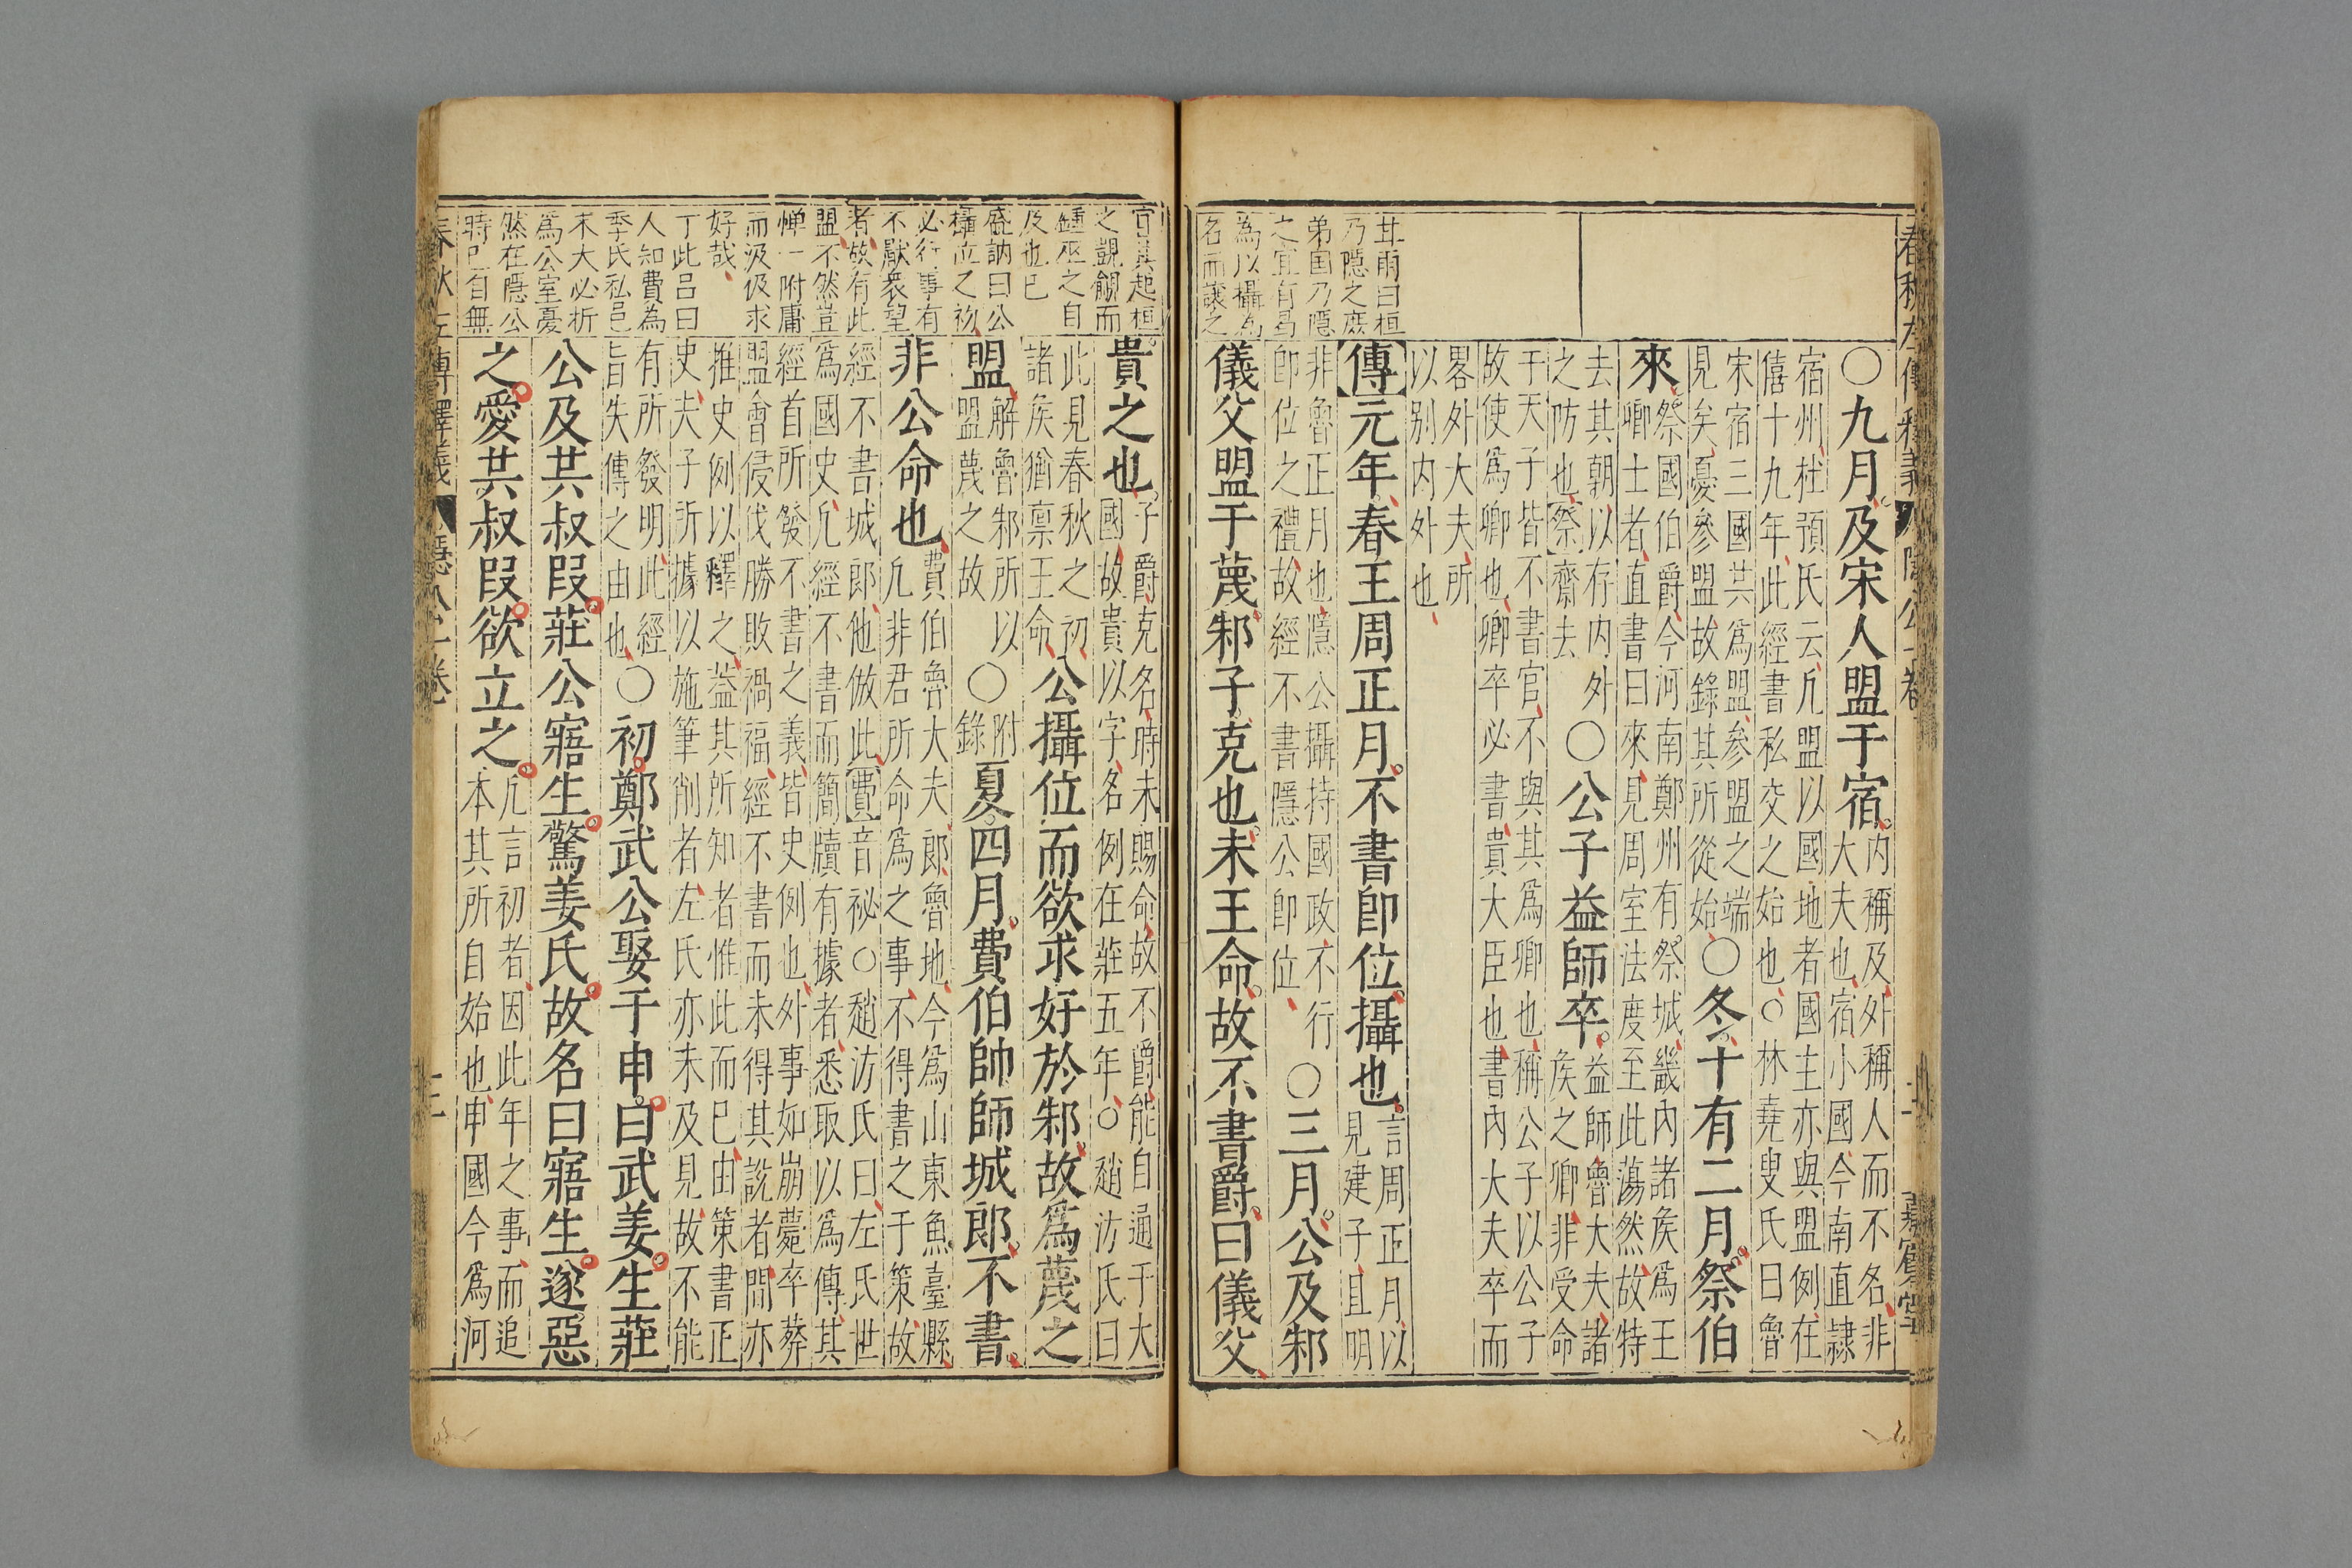 春秋左傳釋義
隱公一卷
二
嘉賓堂
〇九月及宋人盟于宿內稱及外稱人而不名非
大夫也宿小國今南直隸
宿州杜預氏云凡盟以國地者國主亦與盟例在
僖十九年此經書私交之始也〇林堯叟氏曰魯
宋宿三國共爲盟參盟之端
見矣憂參盟故錄其所從始〇冬十有二月祭伯
來祭國伯爵今河南鄭州有祭城畿內諸矦爲王
卿士者直書曰來見周室法度至此蕩然故特
去其朝以存內外
之防也祭齋去〇公子益師卒益師魯大夫諸
矦之卿非受命
于天子皆不書官不與其爲卿也稱公子以公子
故使爲卿也卿卒必書貴大臣也書內大夫卒而
畧外大夫所
以别內外也
茸雨曰桓
乃隱之庶
弟国乃隱
之宜有曷
為以攝為
名而讓之
傳元年春王周正月不書即位攝也言周正月以
見建子且明
非魯正月也隱公攝持國政不行
即位之禮故經不書隱公即位〇三月公及邾
儀父盟于蔑邾子克也未王命故不書爵曰儀父
宜其起桓
之覬覦而
鍾巫之自
及也已
盛訥曰公
攝位之初
必行事有
不厭衆望
者故有此
盟不然豈
憚一附庸
而汲伋求
好哉
丁此呂曰
人知費為
季氏私邑
末大必折
爲公室憂
然在隱公
時已自無
貴之也子爵克名時未賜命故不爵能自通于大
國故貴以字名例在莊五年〇趙汸氏曰
此見春秋之初
諸矦猶禀王命公攝位而欲求好於邾故爲蔑之
盟解魯邾所以
盟蔑之故〇附
錄夏四月費伯帥師城郎不書
非公命也費伯魯大夫郎魯地今爲山東魚臺縣
凡非君所命爲之事不得書之于策故
經不書城郎他倣此費音祕〇趙汸氏曰左氏世
爲國史凡經不書而簡牘有據者悉取以爲傳其
經首所發不書之義皆史例也外事如崩薨卒葬
盟會侵伐勝敗禍福經不書而未得其說者間亦
推史例以釋之葢其所知者惟此而已由策書正
史夫子所據以施筆削者左氏亦未及見故不能
有所發明此經
旨失傳之由也〇初鄭武公娶于申曰武姜生莊
公及共叔叚莊公寤生驚姜氏故名曰寤生遂惡
之愛共叔叚欲立之凡言初者因此年之事而追
本其所自始也申國今爲河
春秋左傳釋義
隱公一卷
三